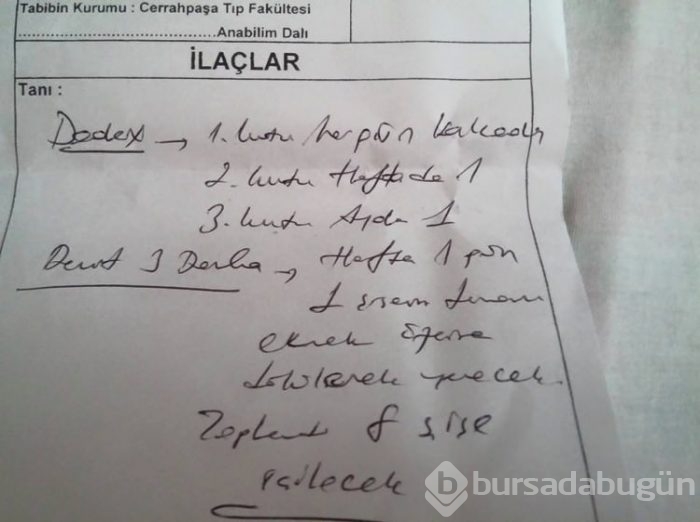 Tabibin Kurumu : Cerrahpaşa Tıp Fakültesi
Anabilim Dalı
İLAÇLAR
Tanı :
Dodex → 1. kutu her gün kalçadan
2. kutu Haftada 1
3. kutu Ayda 1
Devit 3 Damla → Hafta 1 gün
1 şişenin tamamı
ekmek üzerine
dökülerek yenecek
Toplam 8 şişe
içilecek
bursadabugün